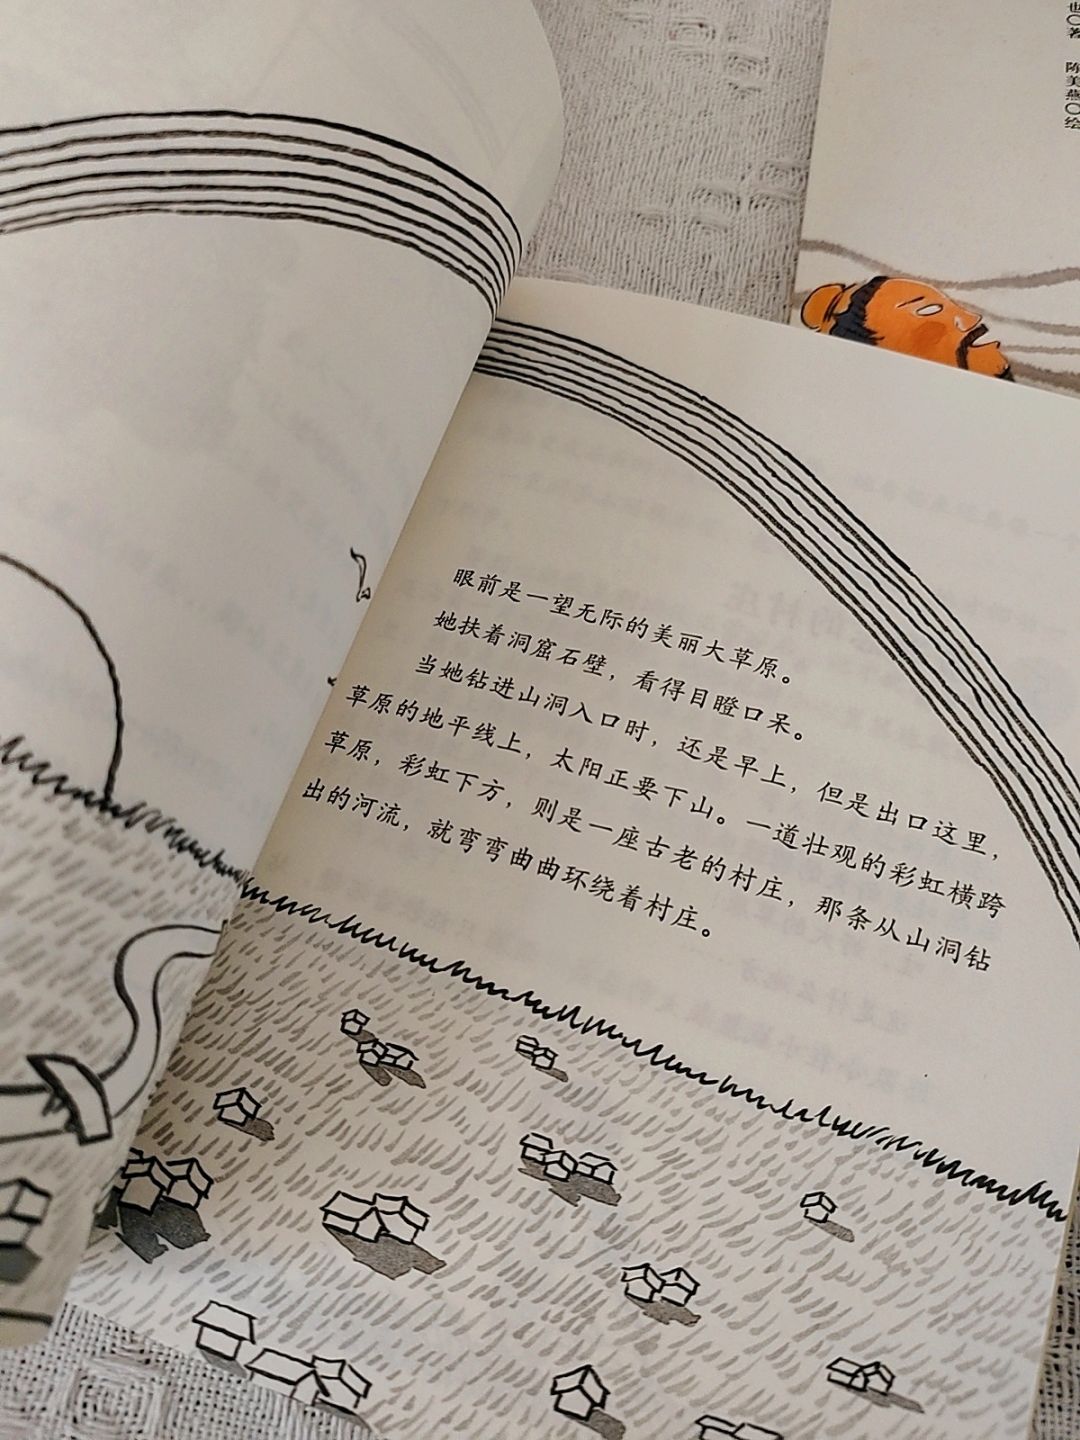 也○著 陈美燕○绘
眼前是一望无际的美丽大草原。
她扶着洞窟石壁，看得目瞪口呆。
当她钻进山洞入口时，还是早上，但是出口这里，
草原的地平线上，太阳正要下山。一道壮观的彩虹横跨
草原，彩虹下方，则是一座古老的村庄，那条从山洞钻
出的河流，就弯弯曲曲环绕着村庄。